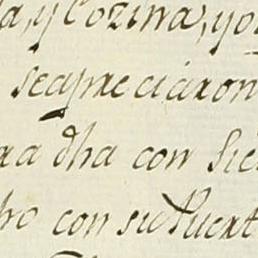 a, y Cozina, yo
se apreciaron
ra dha con Sie
ho con su Puert